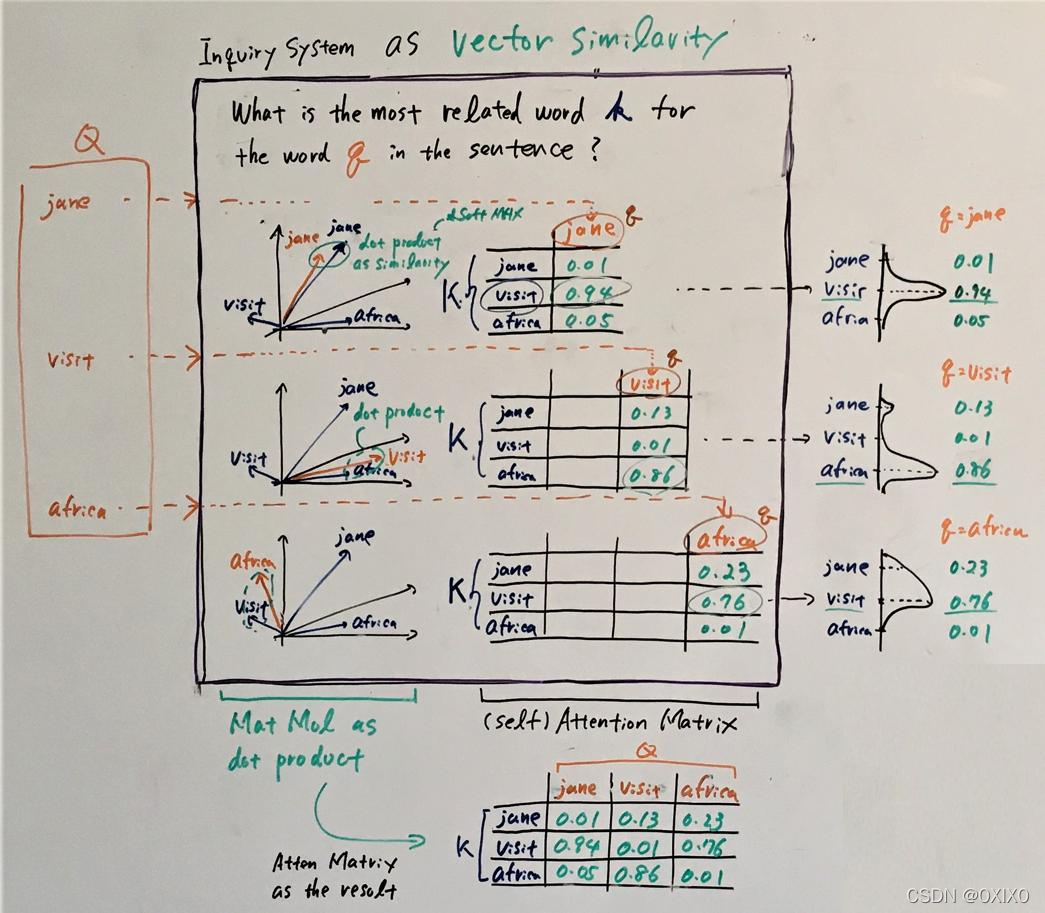 Inquiry System as Vector Similarity
What is the most related word k for
the word q in the sentence ?
Q
jane
visit
africa
jane
jane
dot product
as similarity
& Soft MAX
visit
africa
q
jane
K
jane 0.01
visit 0.94
africa 0.05
q=jane
jane 0.01
visir 0.94
afria 0.05
jane
dot product
visit
visit
africa
q
visit
K
jane 0.13
visit 0.01
africa 0.86
q=visit
jane 0.13
visit 0.01
africa 0.86
africa
jane
visit
africa
q
africa
K
jane 0.23
visit 0.76
africa 0.01
q=africa
jane 0.23
visit 0.76
africa 0.01
Mat Mul as
dot product
(self) Attention Matrix
Q
jane visit africa
K
jane 0.01 0.13 0.23
visit 0.94 0.01 0.76
africa 0.05 0.86 0.01
Atten Matrix
as the result
CSDN @OXIXO